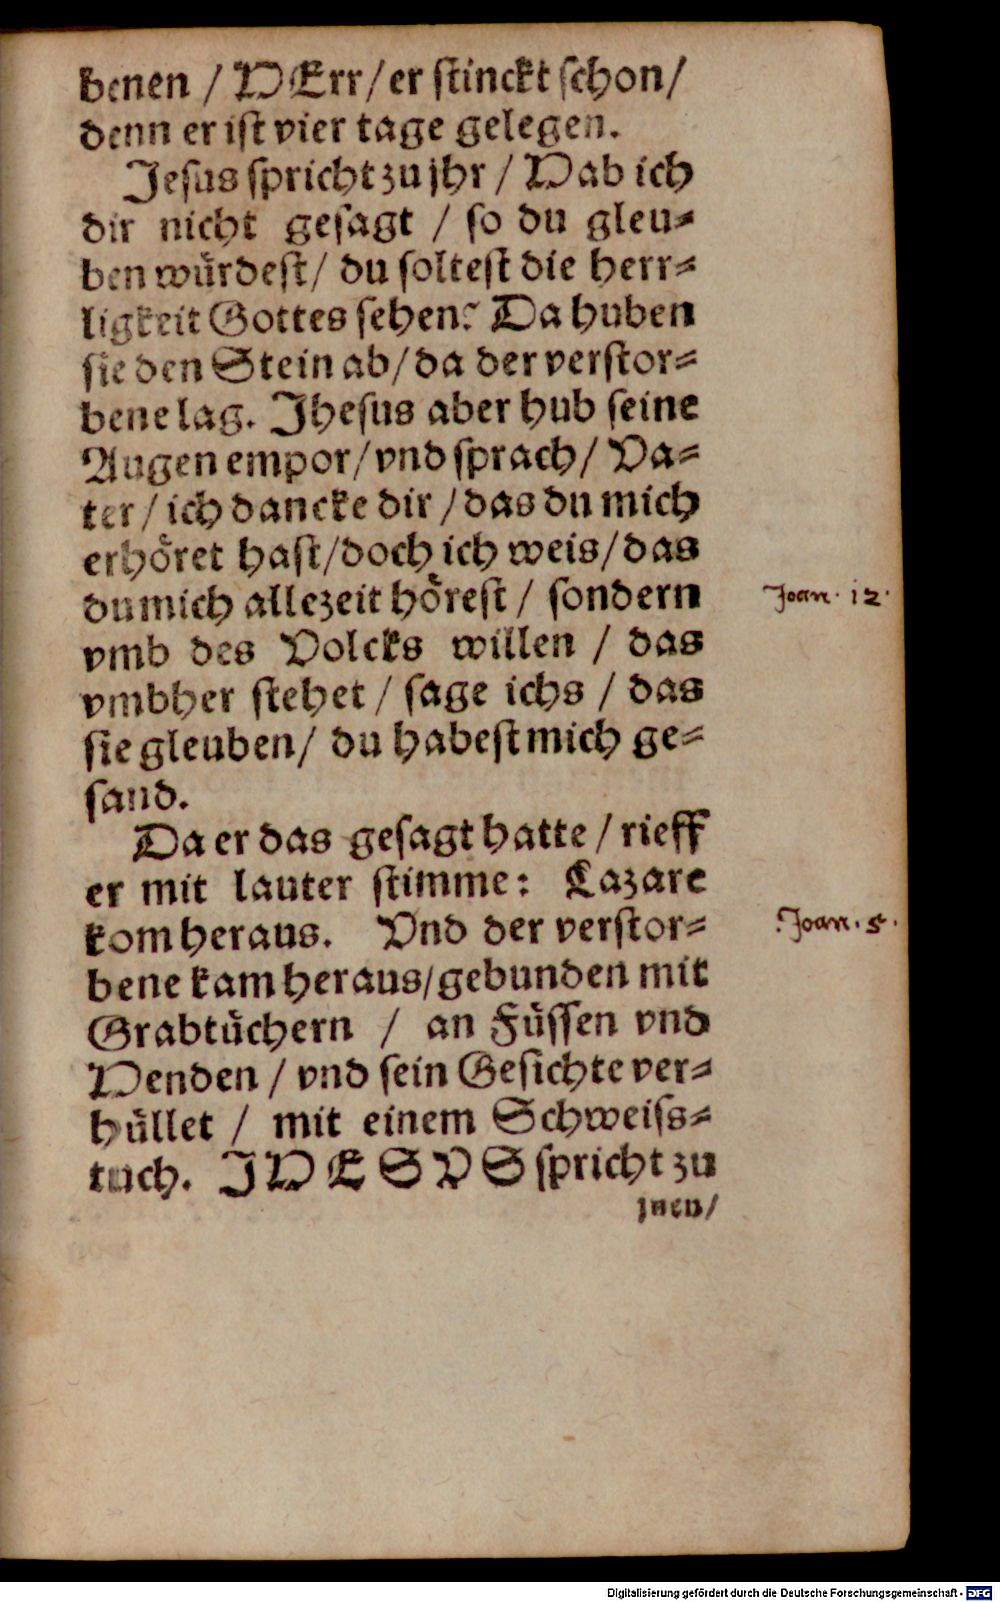 benen / HErr / er stinckt schon /
denn er ist vier tage gelegen.
Jesus spricht zu jhr / Hab ich
dir nicht gesagt / so du gleu⸗
ben wuͤrdest / du soltest die herr⸗
ligkeit Gottes sehen? Da huben
sie den Stein ab / da der verstor⸗
bene lag. Jhesus aber hub seine
Augen empor / vnd sprach / Va⸗
ter / ich dancke dir / das du mich
erhoͤret hast / doch ich weis / das
du mich allezeit hoͤrest / sondern
vmb des Volcks willen / das
vmbher stehet / sage ichs / das
sie gleuben / du habest mich ge⸗
sand.
Da er das gesagt hatte / rieff
er mit lauter stimme: Lazare
kom heraus. Vnd der verstor⸗
bene kam heraus / gebunden mit
Grabtuͤchern / an Fuͤssen vnd
Henden / vnd sein Gesichte ver⸗
huͤllet / mit einem Schweiss⸗
tuch. JHESVS spricht zu
jnen /
Joan. 12.
Joan. 5.
Digitalisierung gefördert durch die Deutsche Forschungsgemeinschaft - DFG